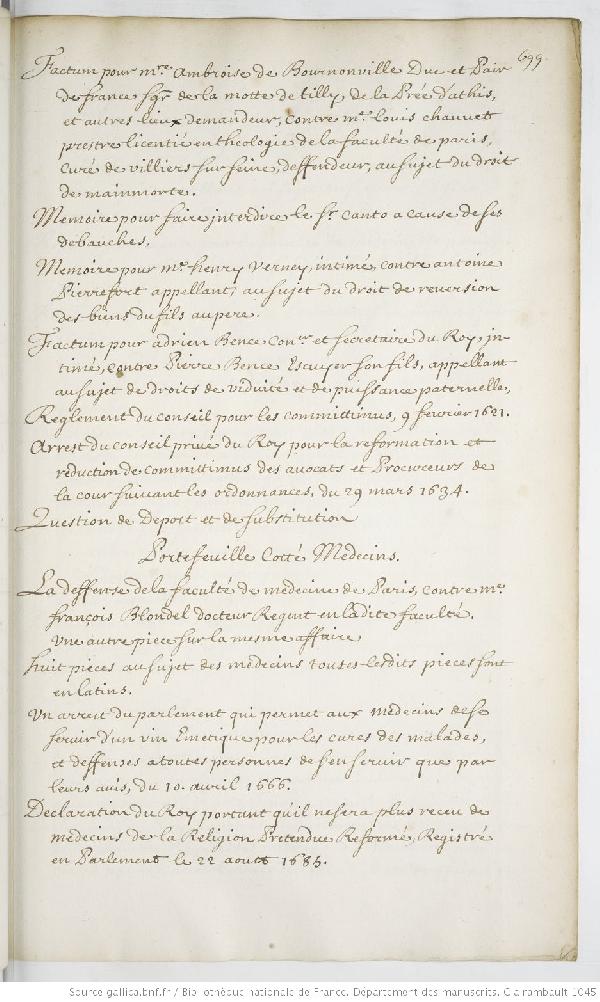 699.
Factum pour mre. Ambroise de Bournonville Duc et Pair
de france sgr. de la motte de tilly, de la Prée d'athis,
et autres lieux demandeur, contre me. Louis chauvett
prestre licentié en theologie de la faculté de paris,
curé de villiers sur seine, deffendeur, au sujet du droit
de mainmorte.
Memoire pour faire interdire le sr. canto a cause de ses
debauches,
Memoire pour me. henry Verney, intimé, contre antoine
Pierrefort appellant, au sujet du droit de reversion
des biens du fils au pere.
Factum pour adrien Bence Conr. et secretaire du Roy, in-
timé, contre Pierre Bence Escuyer son fils, appellant
au sujet de droits de viduité et de puissance paternelle,
Reglement du conseil pour les committimus, 9 fevrier 1621.
Arrest du conseil privé du Roy pour la reformation et
reduction de committimus des avocats et Procureurs de
la cour suivant les ordonnances, du 29 mars 1634.
Question de Deport et de substitution
Portefeuille Cotté Medecins.
La deffense de la faculté de medecine de Paris, contre me.
françois Blondel docteur Regent en ladite faculté.
Une autre piece sur la mesme affaire
huit pieces au sujet des medecins toutes lesdits pieces sont
en latins.
Un arrest du parlement qui permet aux medecins de se
servir d'un vin Emetique pour les cures des malades,
et deffenses a toutes personnes de s'en servir que par
leurs avis, du 10. avril 1666.
Declaration du Roy portant qu'il ne sera plus receu de
medecins de la Religion Pretendue Reformé, Registré
en Parlement le 22 aoust 1685.
Source gallica.bnf.fr / Bibliothèque nationale de France. Département des manuscrits. Clairambault 1045